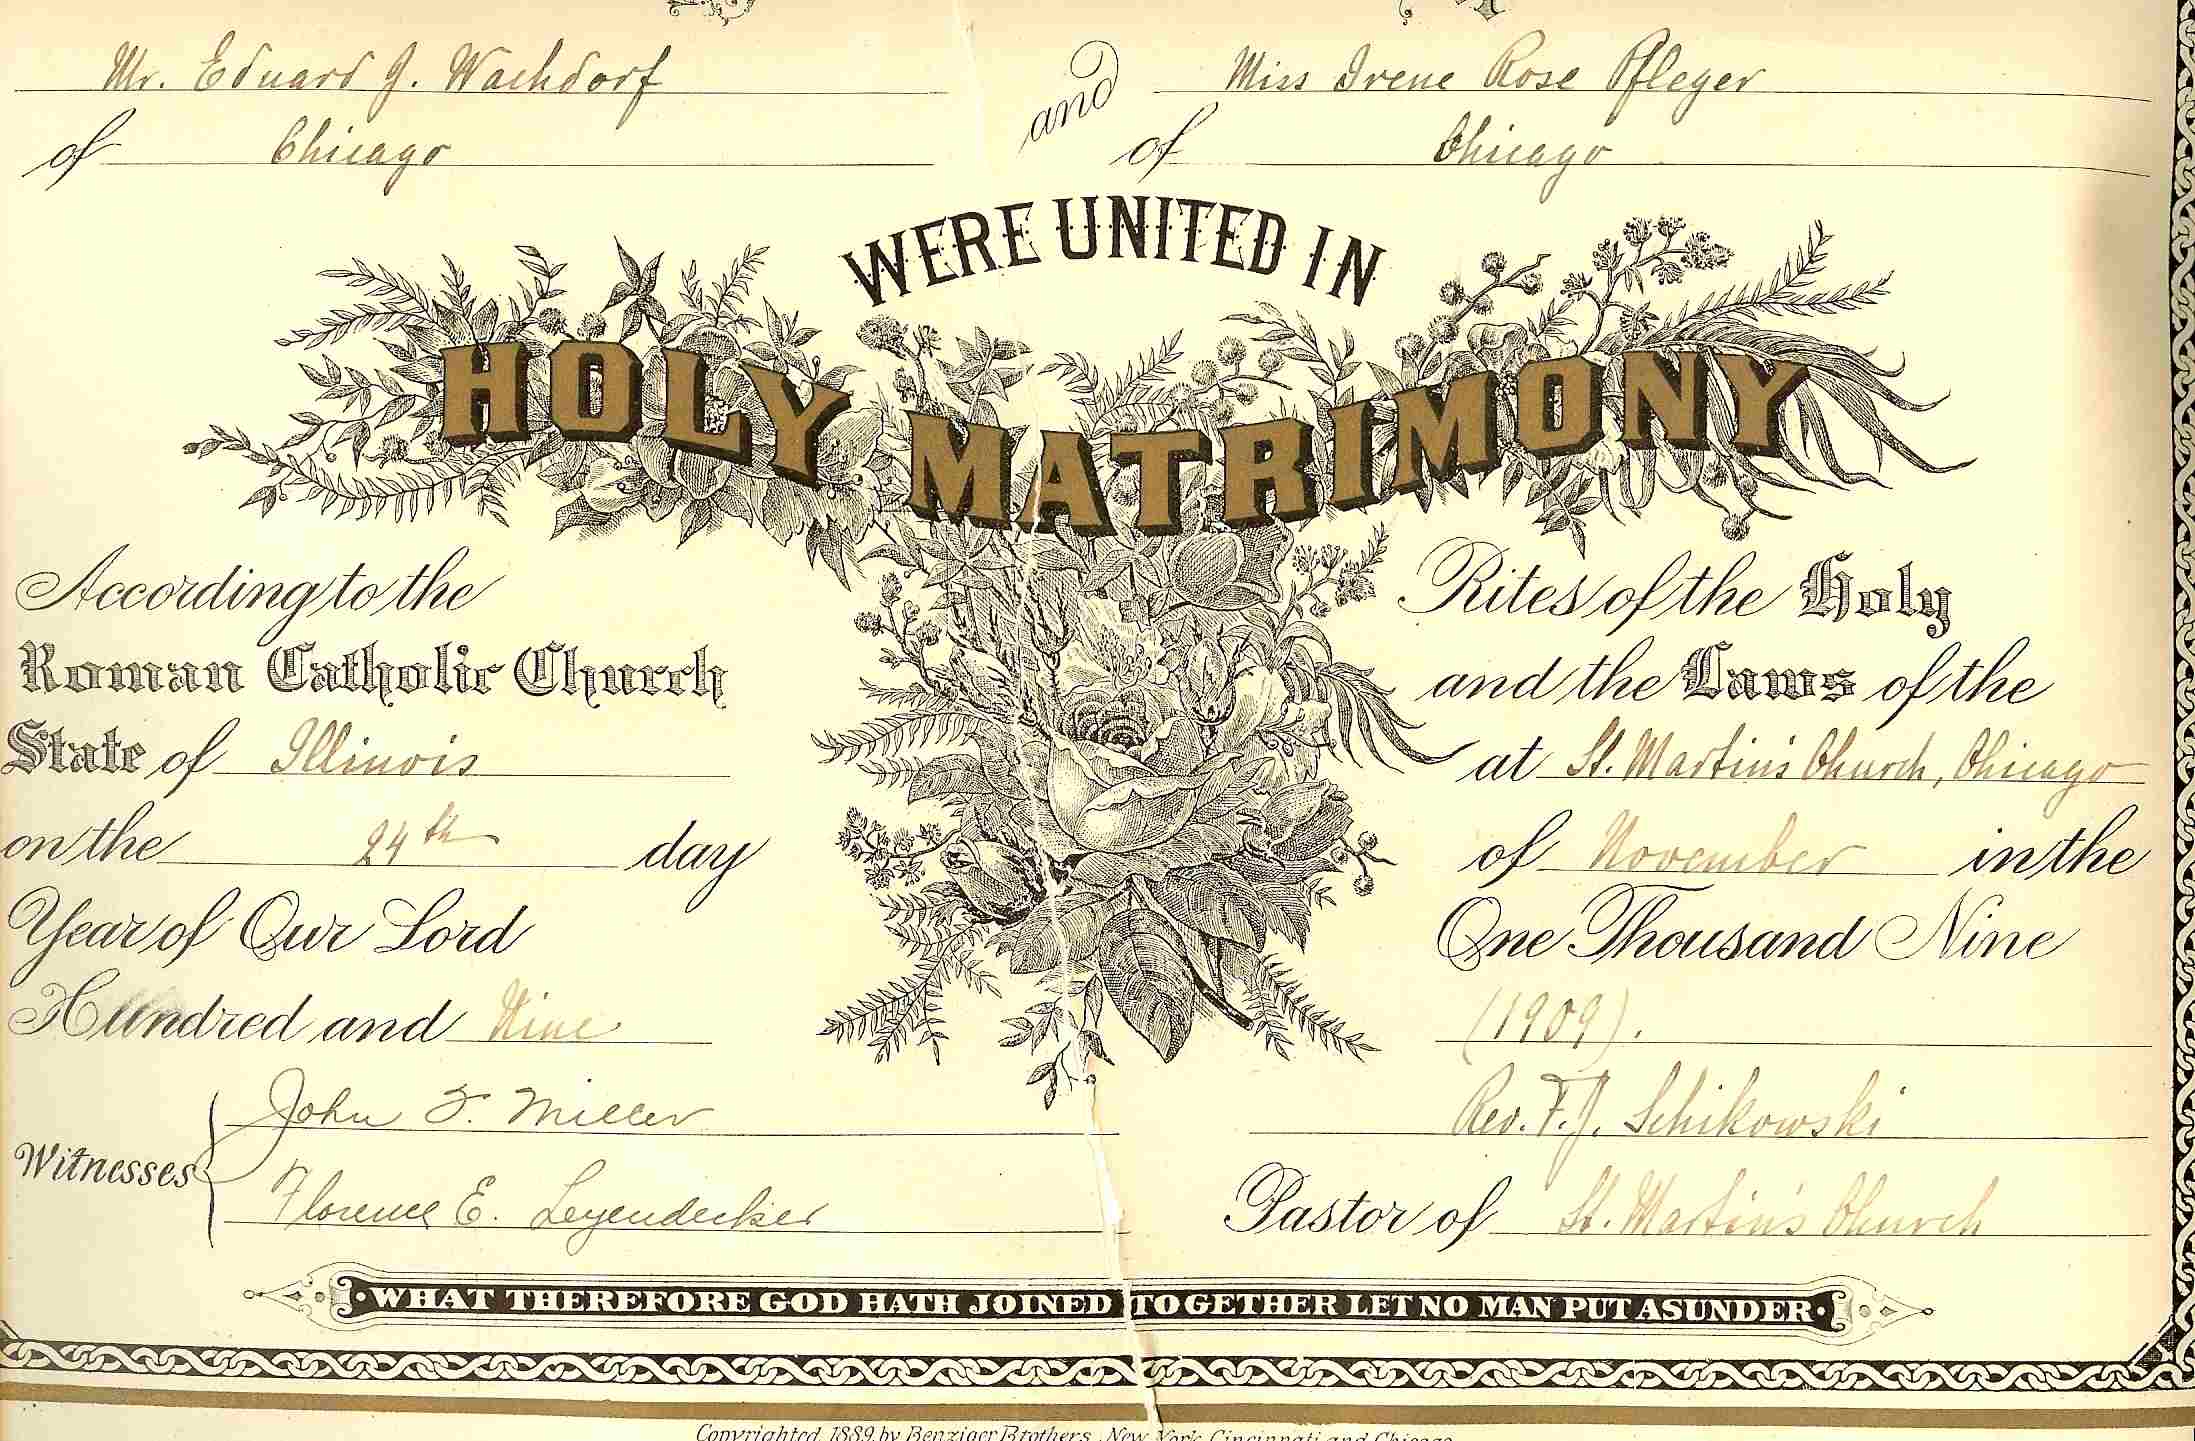 Mr. Eduard J. Wachdorf and Miss Irene Rose Pfleger
of Chicago of Chicago
WERE UNITED IN
HOLY MATRIMONY
According to the Rites of the Holy
Roman Catholic Church and the Laws of the
State of Illinois at St. Martin's Church, Chicago
on the 24th day of November in the
Year of Our Lord One Thousand Nine
Hundred and Nine (1909).
John F. Miller Rev. F. J. Schikowski
Witnesses
Florence E. Leyendecker Pastor of St. Martin's Church
·WHAT THEREFORE GOD HATH JOINED TOGETHER LET NO MAN PUT ASUNDER·
Copyrighted, 1889, by Benziger Brothers, New York, Cincinnati and Chicago